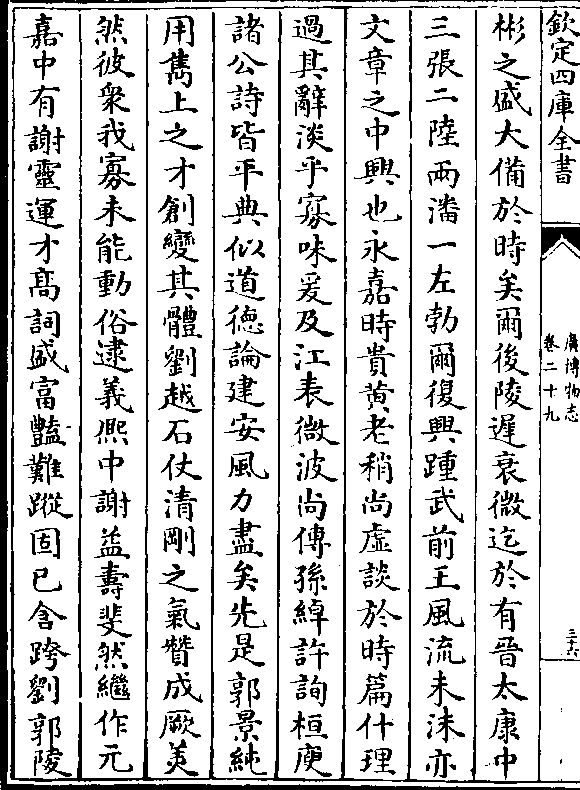 欽定四庫全書
廣博物志
卷二十九
三十六
彬之盛大備於時矣爾後陵遲衰微迄於有晉太康中
三張二陸兩潘一左勃爾復興踵武前王風流未沬亦
文章之中興也永嘉時貴黄老稍尚虛談於時篇什理
過其辭淡乎寡味爰及江表微波尚傳孫綽許詢桓庾
諸公詩皆平典似道德論建安風力盡矣先是郭景純
用雋上之才創變其體劉越石仗清剛之氣贊成厥美
然彼衆我寡未能動俗逮義熙中謝益壽斐然繼作元
嘉中有謝靈運才髙詞盛富豔難蹤固已含跨劉郭陵